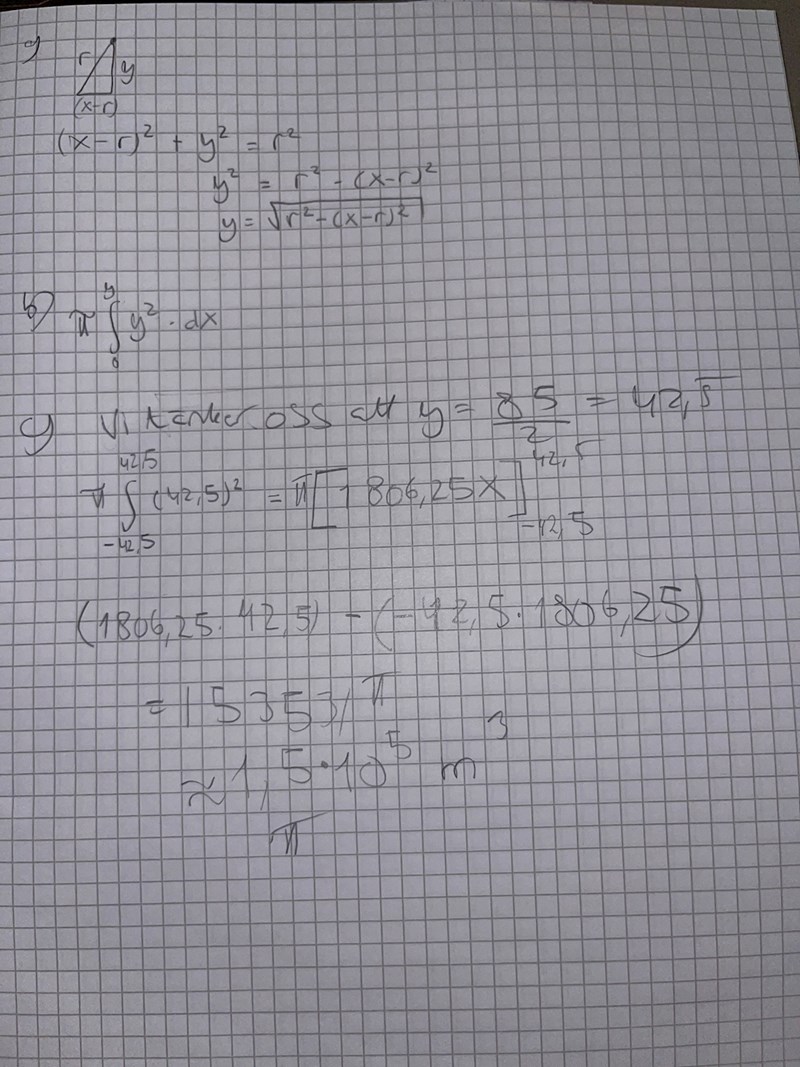 a)
r
y
(x-r)
(x-r)² + y² = r²
y² = r² - (x-r)²
y = √(r²-(x-r)²)
b) π ∫₀^y y² · dx
c) Vi tänker oss att y = 85/2 = 42,5
π ∫_{-42,5}^{42,5} (42,5)² = π [1806,25x]_{-42,5}^{42,5}
(1806,25 · 42,5) - (-42,5 · 1806,25)
= 153531 π
≈ 1,5 · 10⁵ m³
π